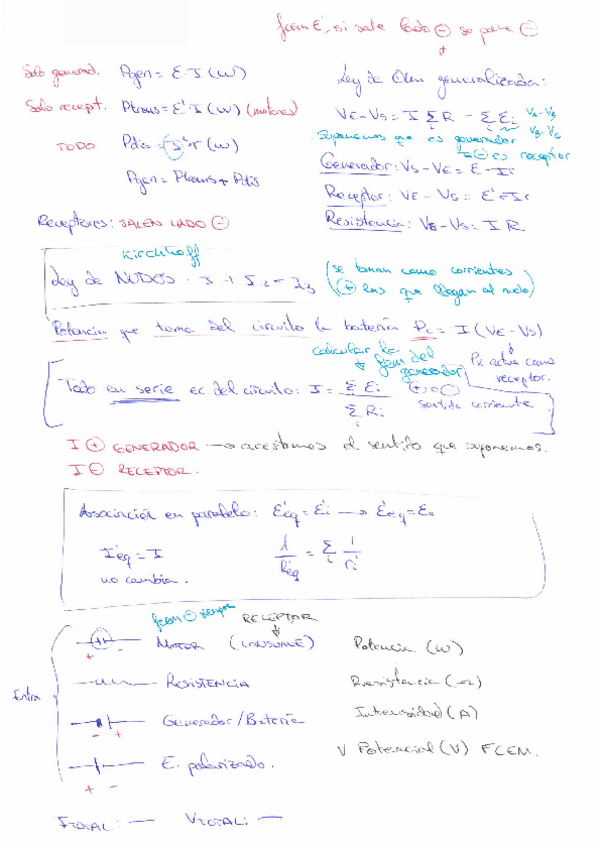 fcem ε', si sale lado ⊖ se pone ⊖
Solo generad. Pgen = ε·I (W)
Solo recept. Ptrans = ε'·I (W) (motores)
TODO Pdis = I²r (W)
Pgen = Ptrans + Pdis
Receptores: SALEN LADO ⊖
Ley de Ohm generalizada:
VE - VS = I Σ R - Σ Ei
Suponemos que es generador
I ⊖ es receptor
Generador: VS - VE = E - Ir
Receptor: VE - VS = E' + Ir
Resistencia: VE - VS = I R
Kirchhoff
Ley de NUDOS
(se toman como corrientes
⊕ las que llegan al nudo)
Potencia que toma del circuito la batería Pc = I (VE - VS)
Pc actúa como
receptor.
calcular la
fem del
generador
Todo en serie ec. del circuito: I = Σ Ei / Σ Ri
sentido corriente
I ⊕ GENERADOR → acertamos el sentido que suponemos.
I ⊖ RECEPTOR.
Asociación en paralelo: E'eq = E'i → E'eq = E0
I'eq = I
no cambia.
1/Req = Σ 1/ri
fcem ⊖ siempre RECEPTOR
Entra
+ - MOTOR (CONSUME)
RESISTENCIA
- + Generador/Batería
+ - E. polarizado.
Potencia (W)
Resistencia (Ω)
Intensidad (A)
V Potencial (V) FCEM.
ITOTAL: — VTOTAL: —